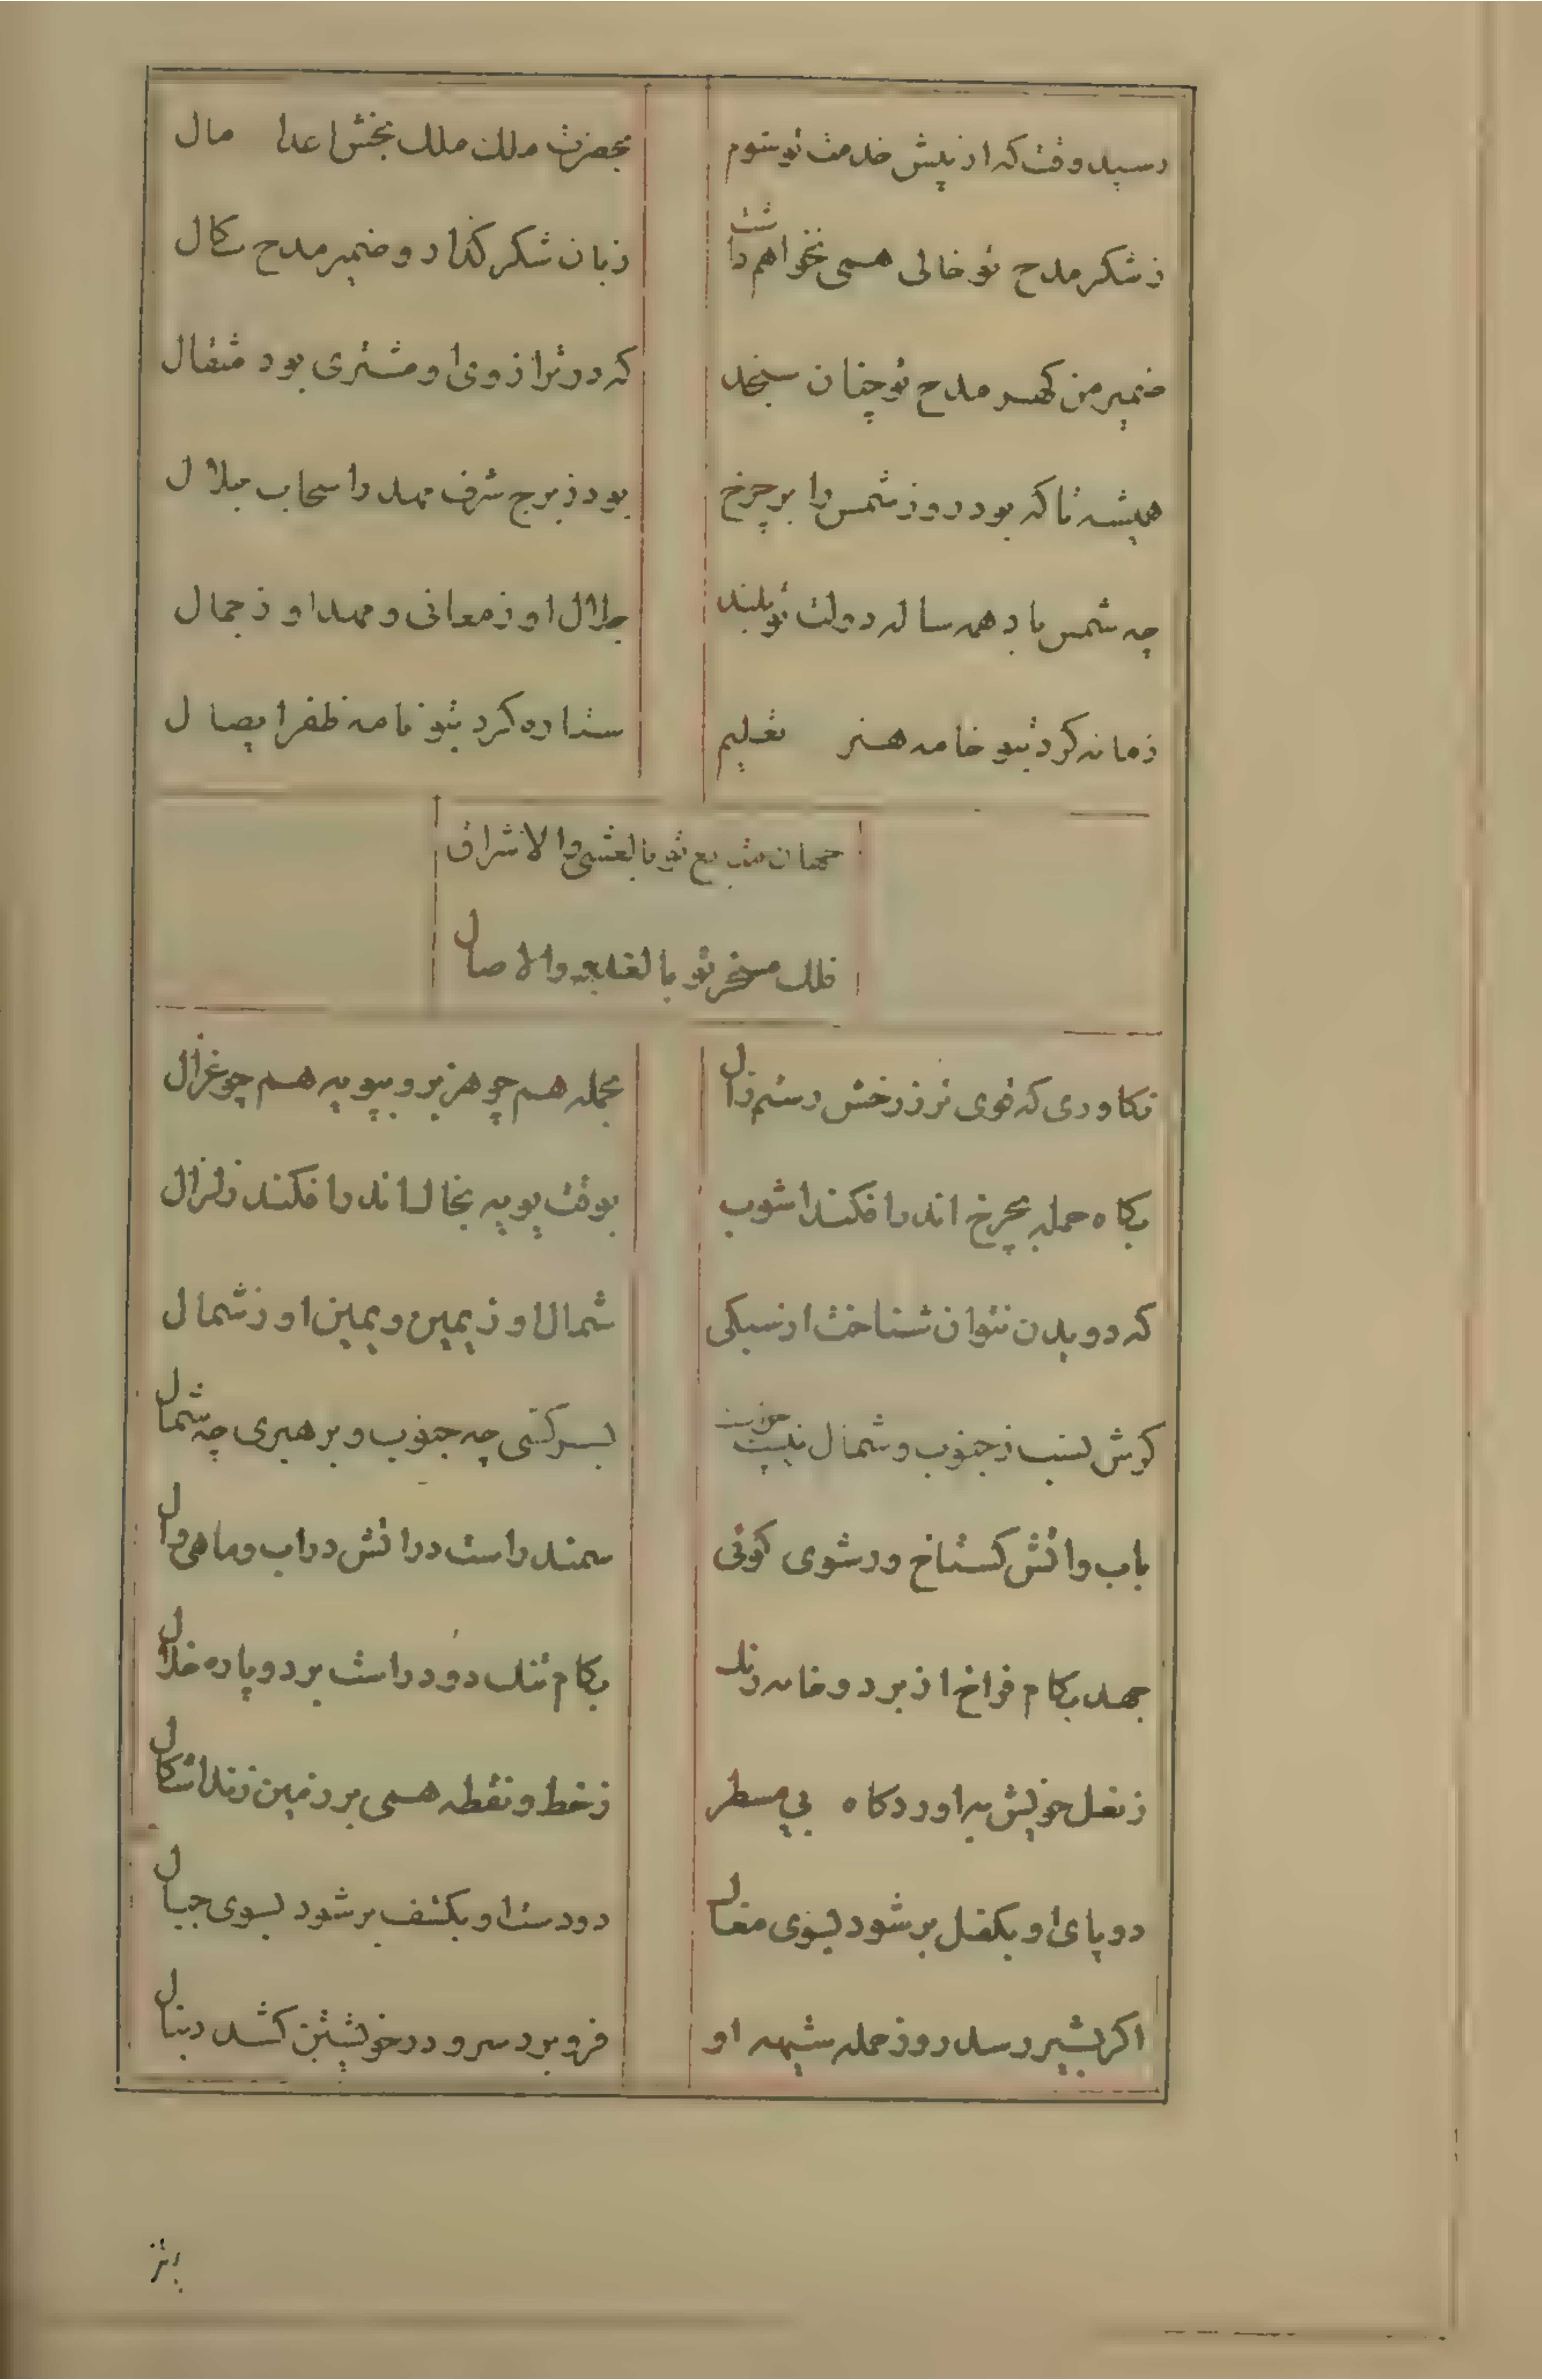 رسید وقت که از پیش خدمت تو شوم
بحضرت ملک ملک بخش اعدا مال
ز شکر مدح تو خالی همی نخواهم داشت
زبان شکر کذار و ضمیر مدح سکال
ضمیر من کهر مدح تو چنان سنجد
که در ترازوی او مشتری بود مثقال
همیشه تا که بود روز شمس را بر چرخ
بود ز برج شرف مهد را سحاب جلال
چه شمس باد همه ساله دولت تو بلند
جلال او ز معانی و مهد او ز جمال
زمانه کرد بتو خامه هنر تعلیم
ستاره کرد بتو نامه ظفر ایصال
جهان متابع تو بالعشی والاشراق
فلک مسخر تو بالغدو والاصال
تکاوری که قوی تر ز رخش رستم زال
بحمله هم چو هزبر و بپویه هم چو غزال
بکاه حمله بچرخ اندر افکند اشوب
بوقت پویه بخاک اندر افکند زلزال
که دویدن نتوان شناخت از سبکی
شمال او ز یمین و یمین او ز شمال
کرش نسب ز جنوب و شمال نیست
بسرکشی چه جنوب و برهبری چه شمال
باب و اتش کستاخ ورشوی کوئی
سمندر است در اتش در اب و ماهی وال
جهد بکام فراخ از بر دو خامه رنک
بکام تنک دود راست بر دو پاره خلال
ز نعل خویش براورد کاه بی مسطر
ز خط و نقطه همی بر زمین زند اشکال
دو پای او بکفل بر شود بسوی مغال
دو دست او بکتف بر شود بسوی جبال
اکر بشیر رسد روز حمله شیهه او
فرو برد سر و در خویشتن کشد دنبال